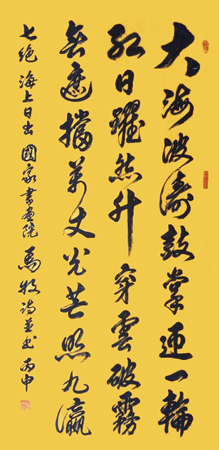 大海波涛鼓掌迎一輪
红日躍然升穿雲破霧
無遮擋萬丈光芒照九瀛
七绝 海上日出 國家書畫院 馬牧詩並书 丙申